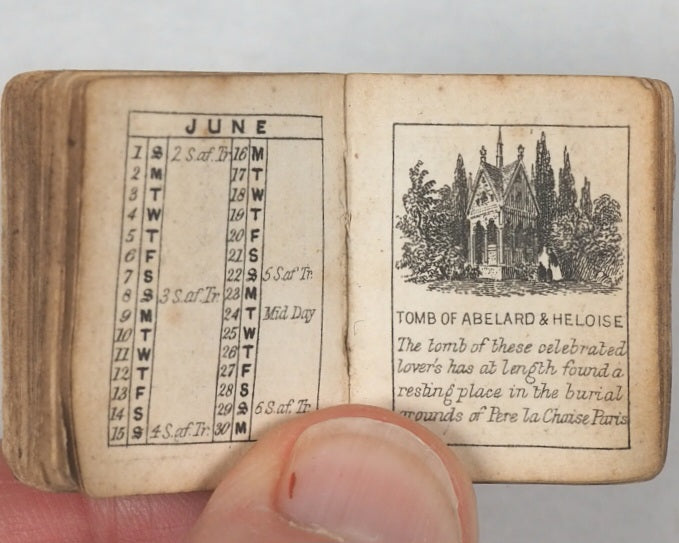 JUNE
1 S 2 S. af. Tr. 16 M
2 M 17 T
3 T 18 W
4 W 19 T
5 T 20 F
6 F 21 S
7 S 22 S 5 S. af Tr.
8 S 3 S. af. Tr. 23 M
9 M 24 T Mid Day
10 T 25 W
11 W 26 T
12 T 27 F
13 F 28 S
14 S 29 S 6 S. af. Tr.
15 S 4 S. af. Tr. 30 M
TOMB OF ABELARD & HELOISE
The tomb of these celebrated
lover's has at length found a
resting place in the burial
grounds of Pere la Chaise Paris